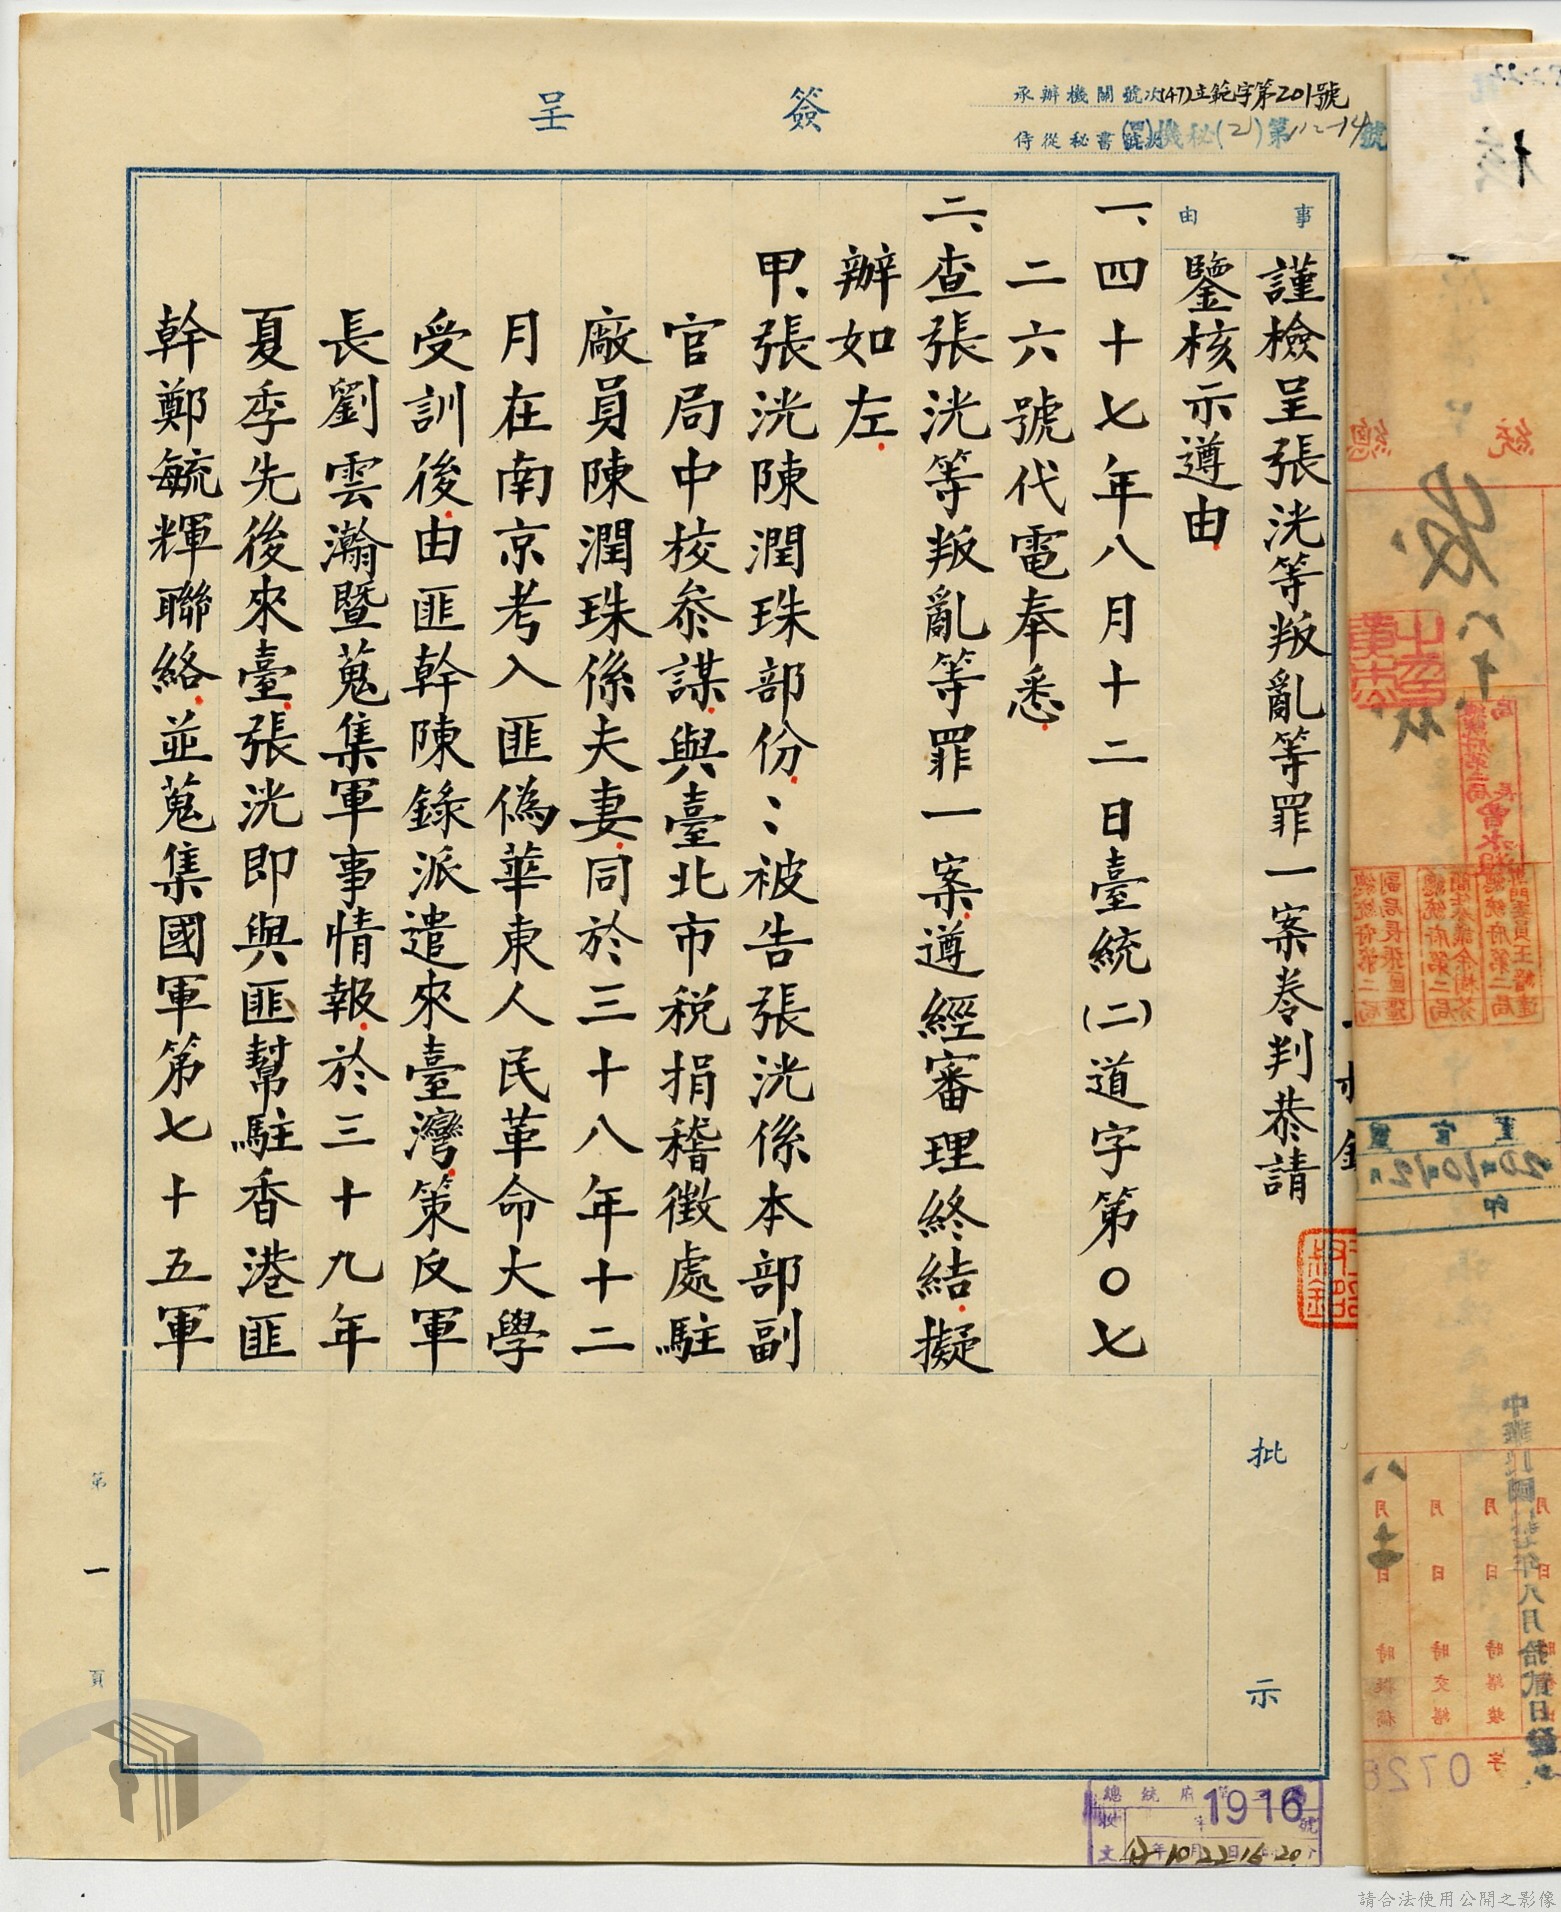 簽呈
承辦機關號次(47)立範字第201號
侍從秘書號次 機秘(2)第112-14號
事由
謹檢呈張洸等叛亂等罪一案卷判恭請
鑒核示遵由
一、四十七年八月十二日臺統(二)道字第〇七
二六號代電奉悉
二、查張洸等叛亂等罪一案遵經審理終結擬
辦如左
甲、張洸陳潤珠部份：被告張洸係本部副
官局中校參謀與臺北市稅捐稽徵處駐
廠員陳潤珠係夫妻同於三十八年十二
月在南京考入匪偽華東人民革命大學
受訓後由匪幹陳錄派遣來臺灣策反軍
長劉雲瀚暨蒐集軍事情報於三十九年
夏季先後來臺張洸即與匪幫駐香港匪
幹鄭毓輝聯絡並蒐集國軍第七十五軍
批示
第一頁
總統府
1916號
收文
年10月22日16 20
核
總統
局長曾
中華民國 年八月拾貳日
0726
請合法使用公開之影像